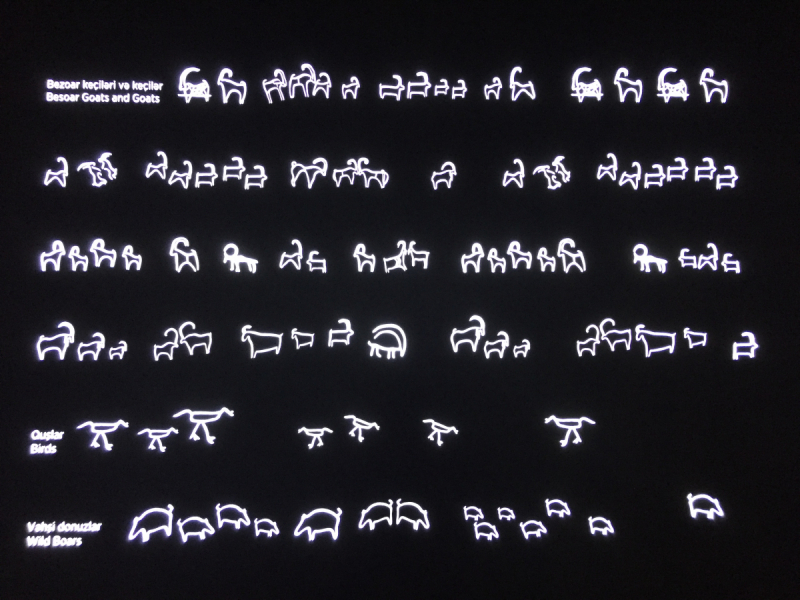 Bezoar keçiləri və keçilər
Besoar Goats and Goats
Quşlar
Birds
Vəhşi donuzlar
Wild Boars